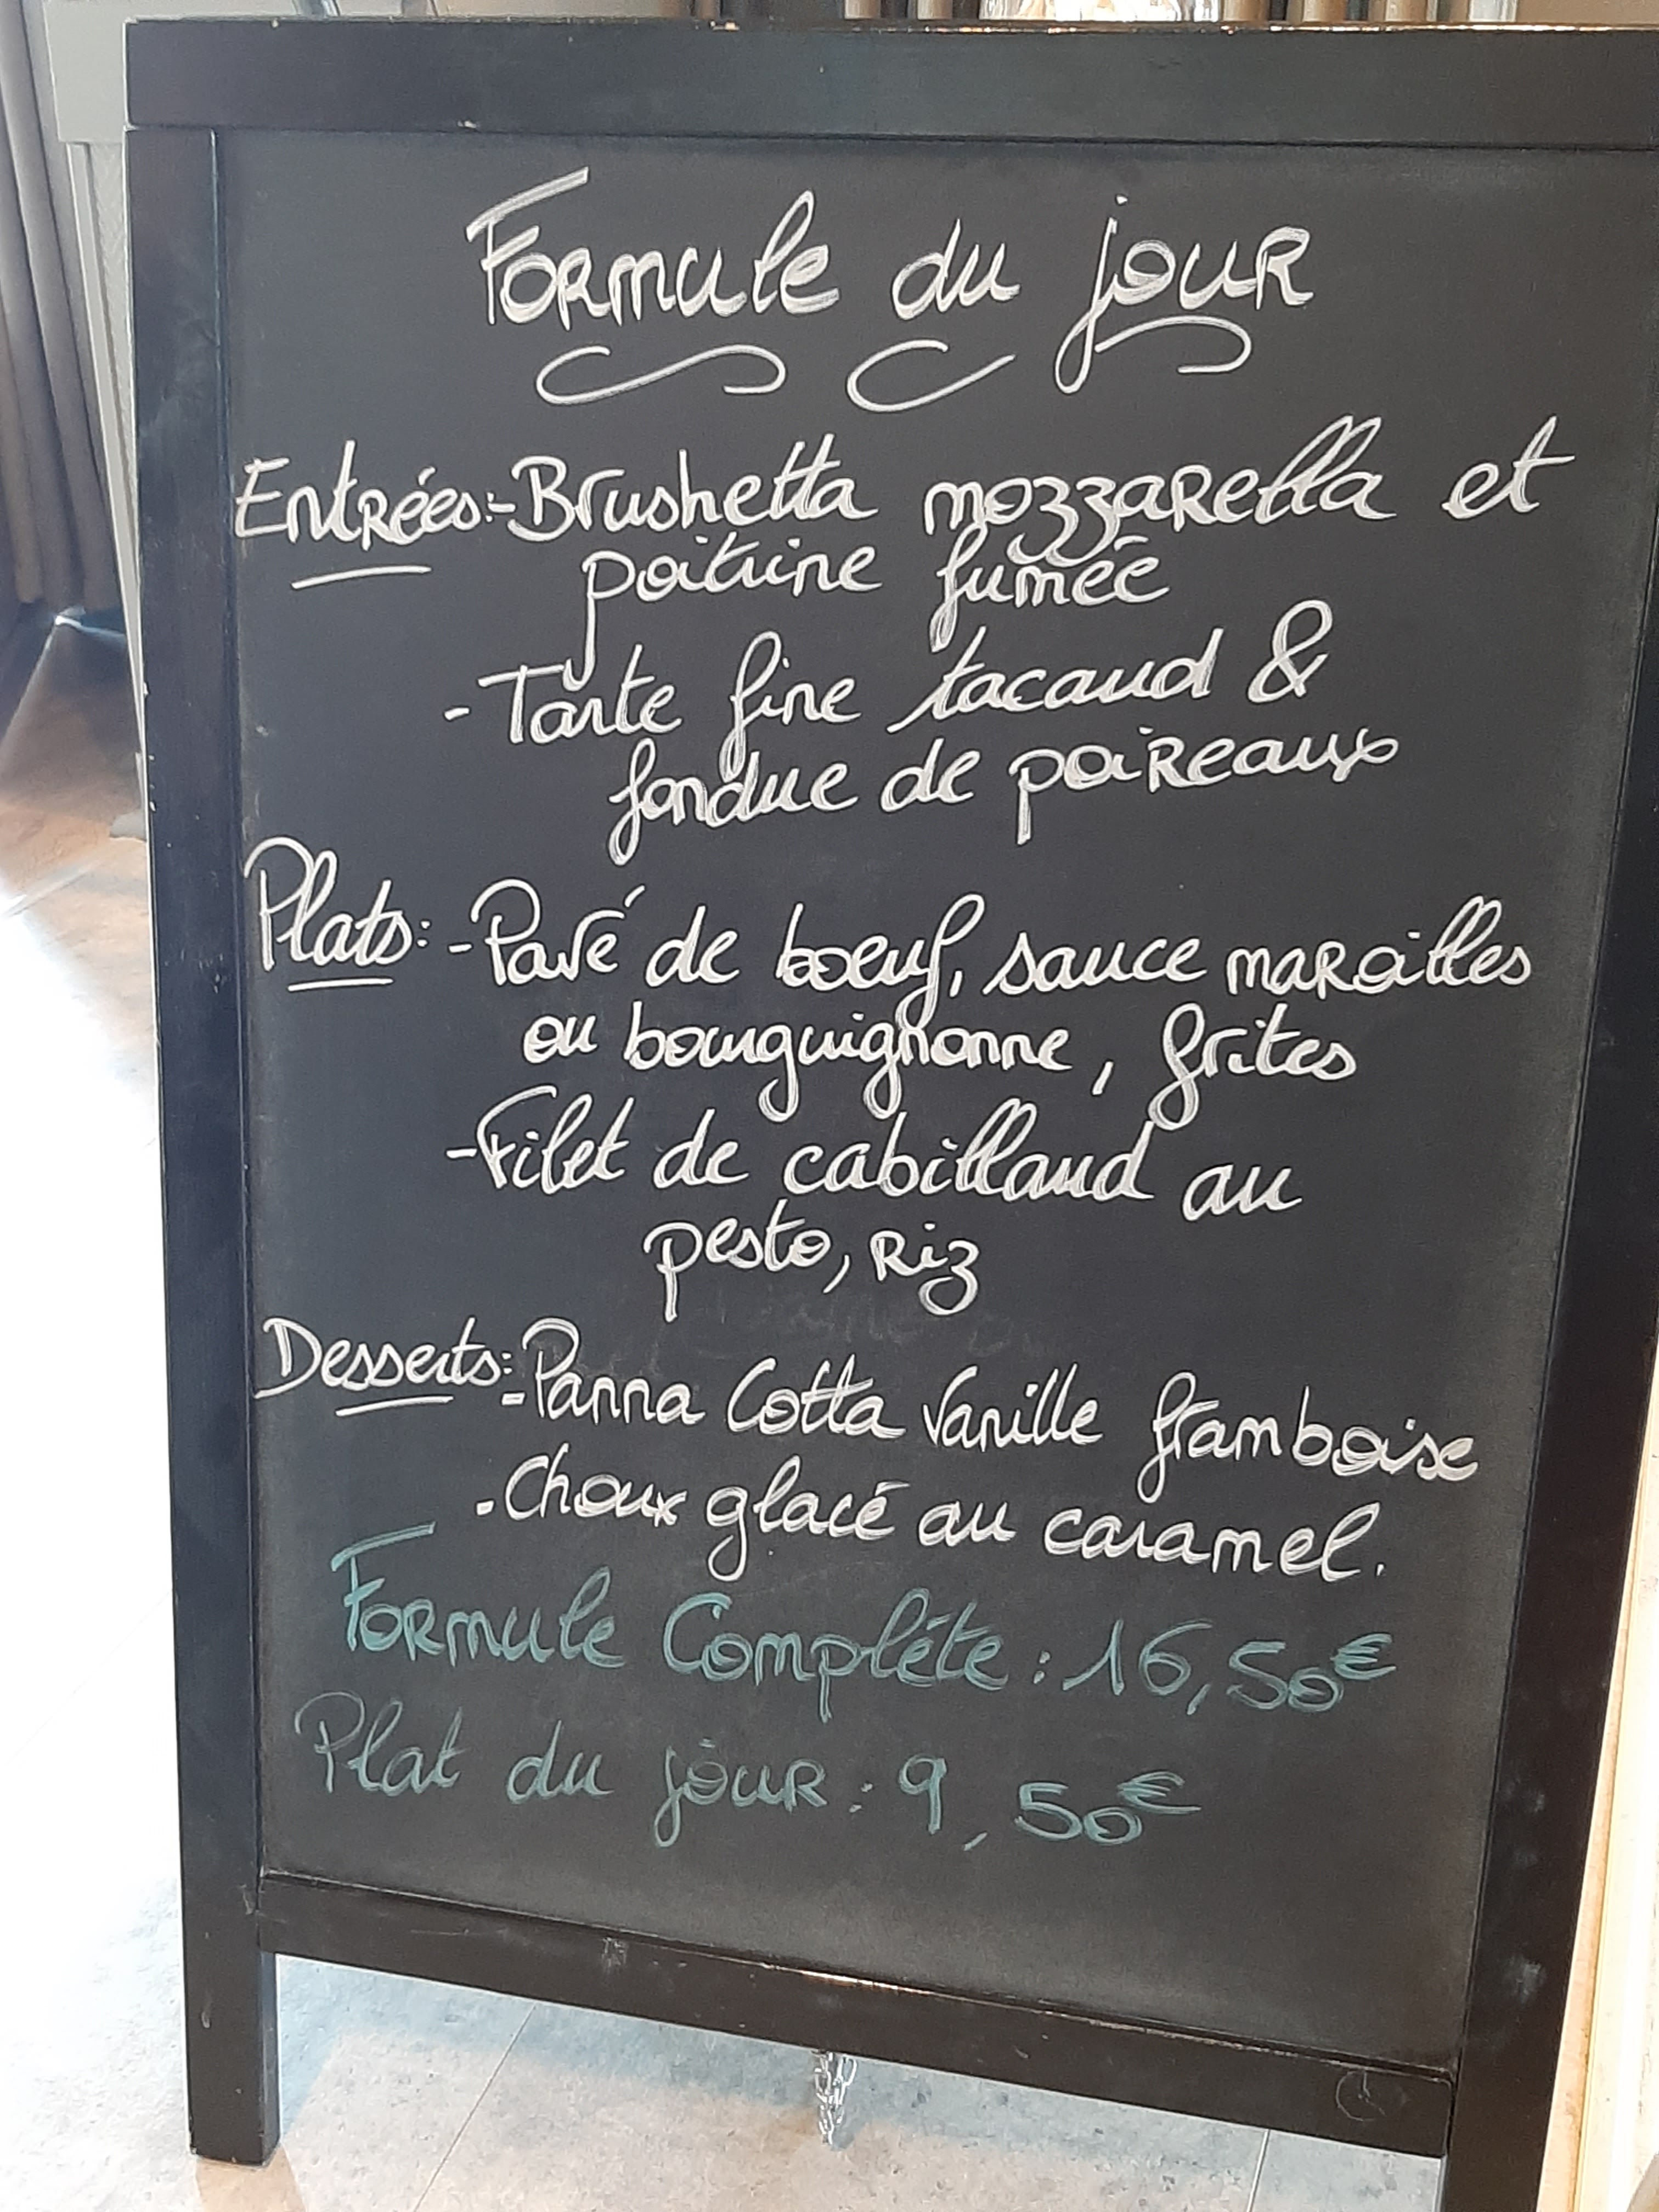 Formule du jour
Entrées:-Brushetta mozzarella et
poitrine fumée
-Tarte fine tacaud &
fondue de poireaux
Plats: -Pavé de boeuf, sauce maroilles
ou bourguignonne, frites
-Filet de cabillaud au
pesto, riz
Desserts:-Panna Cotta Vanille framboise
-Choux glacé au caramel.
Formule Compléte : 16,50€
Plat du jour : 9,50€